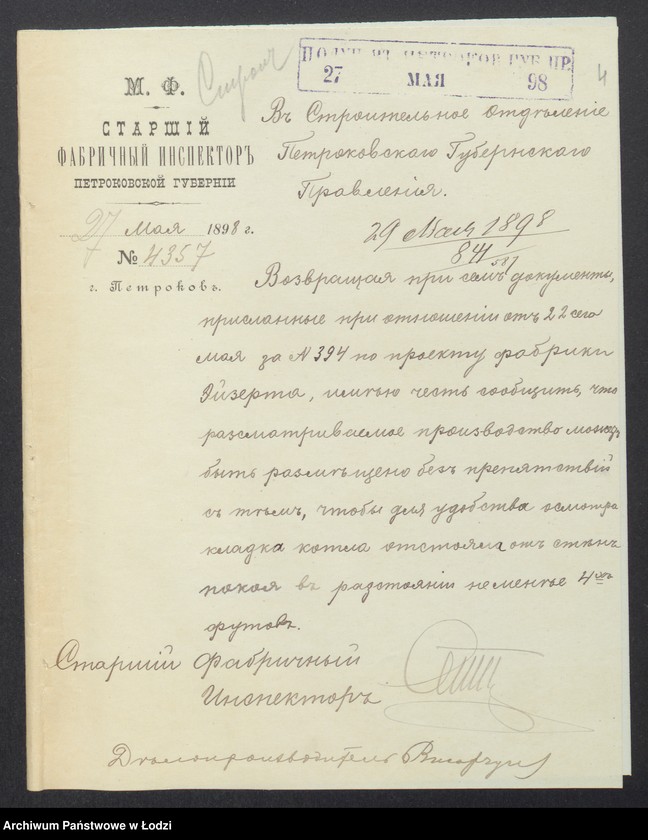 М. Ф.
СТАРШІЙ
ФАБРИЧНЫЙ ИНСПЕКТОРЪ
ПЕТРОКОВСКОЙ ГУБЕРНІИ
27 Мая 1898 г.
№ 4357
г. Петроковъ.
ПОЛУЧ. ИЗ ПЕТРОКОВ. ГУБ. ПР.
27 МАЯ 98
4
Въ Строительное отдѣленіе
Петроковскаго Губернскаго
Правленія.
29 Мая 1898
841
Возвращая при семъ документы,
присланные при отношеніи отъ 22 сего
мая за № 394 по проекту фабрики
Эйзерта, имѣю честь сообщить, что
разсматриваемое производство можетъ
быть размѣщено безъ препятствій
съ тѣмъ, чтобы для удобства осмотра
кладка котла отстояла отъ стѣнъ
покоя въ разстояніи не менѣе 4хъ
футовъ.
Старшій Фабричный
Инспекторъ
Дѣлопроизводитель
Archiwum Państwowe w Łodzi